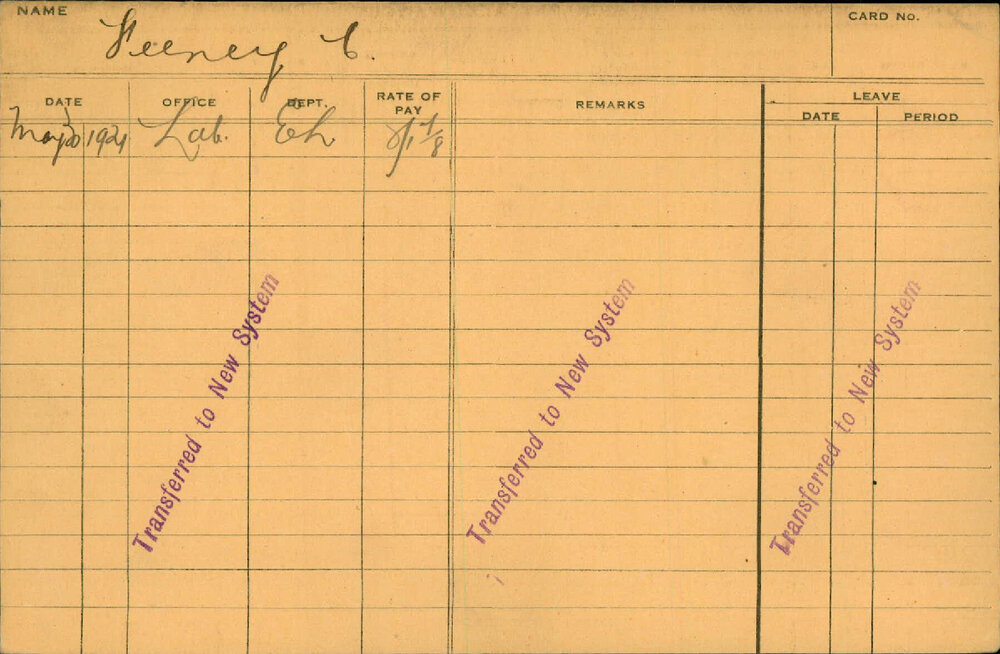 NAME
Feeney C.
CARD No.
DATE OFFICE DEPT. RATE OF PAY REMARKS LEAVE
DATE PERIOD
May 20 1921 Lab. Eh
Transferred to New System
Transferred to New System
Transferred to New System